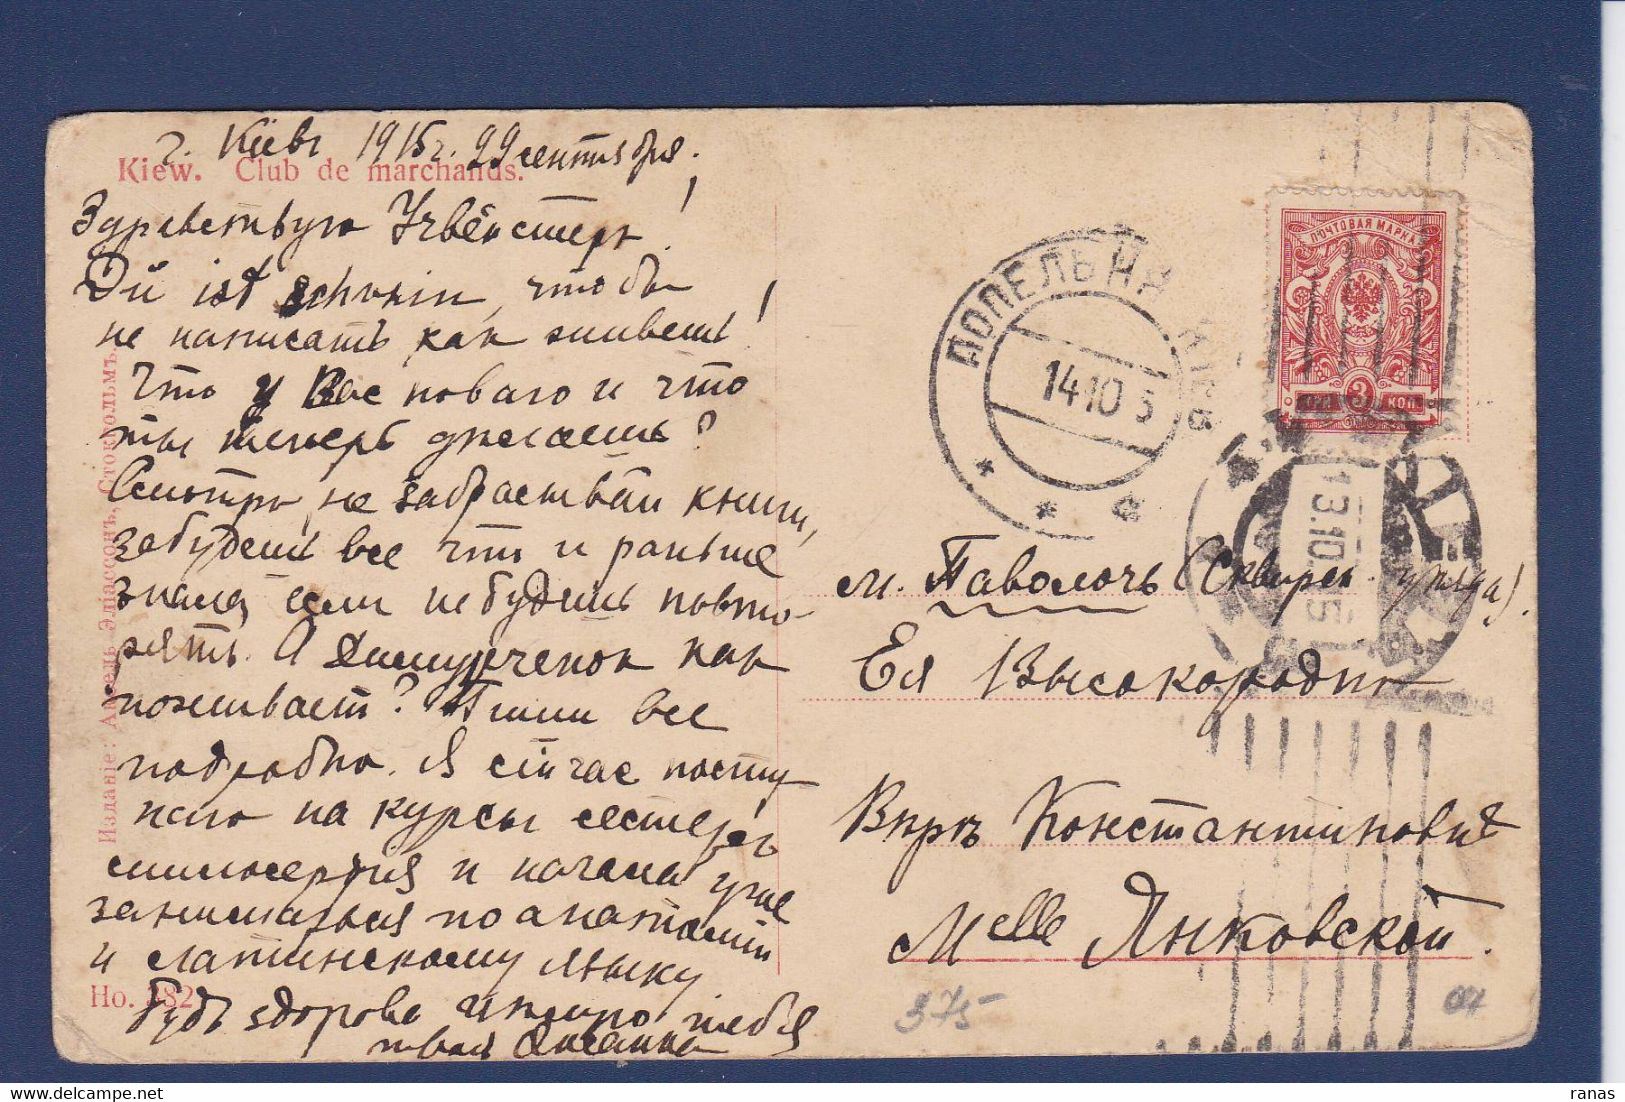 г. Кіевъ 1915 г. 29 сентября.
Kiew. Club de marchands.
Здравствуй !
Du ist , чтобы
не написать как живешь!
Что у Вас новаго и что
ты теперь делаешь?
Смотри, не забрасывай книги,
забудешь все что и раньше
знала если не будешь повто-
рять. А как
поживает? Пиши все
подробно. Я сейчас посту
паю на курсы сестеръ
милосердія и начала уже
заниматься по анатоміи
и латинскому языку
Будь здорова цѣлую тебя
твоя Оксана
Изданіе: Аксель Эліассонъ, Стокгольмъ.
Но. 382
ПОПЕЛЬНЯ КІЕВ
14 10 5
ПОЧТОВАЯ МАРКА
3 КОП
13.10.15
м. Паволочь (Сквирск. уѣзда).
Ея Высокородію
Вѣрѣ Константиновнѣ
Melle Янковской.
375-
ranas